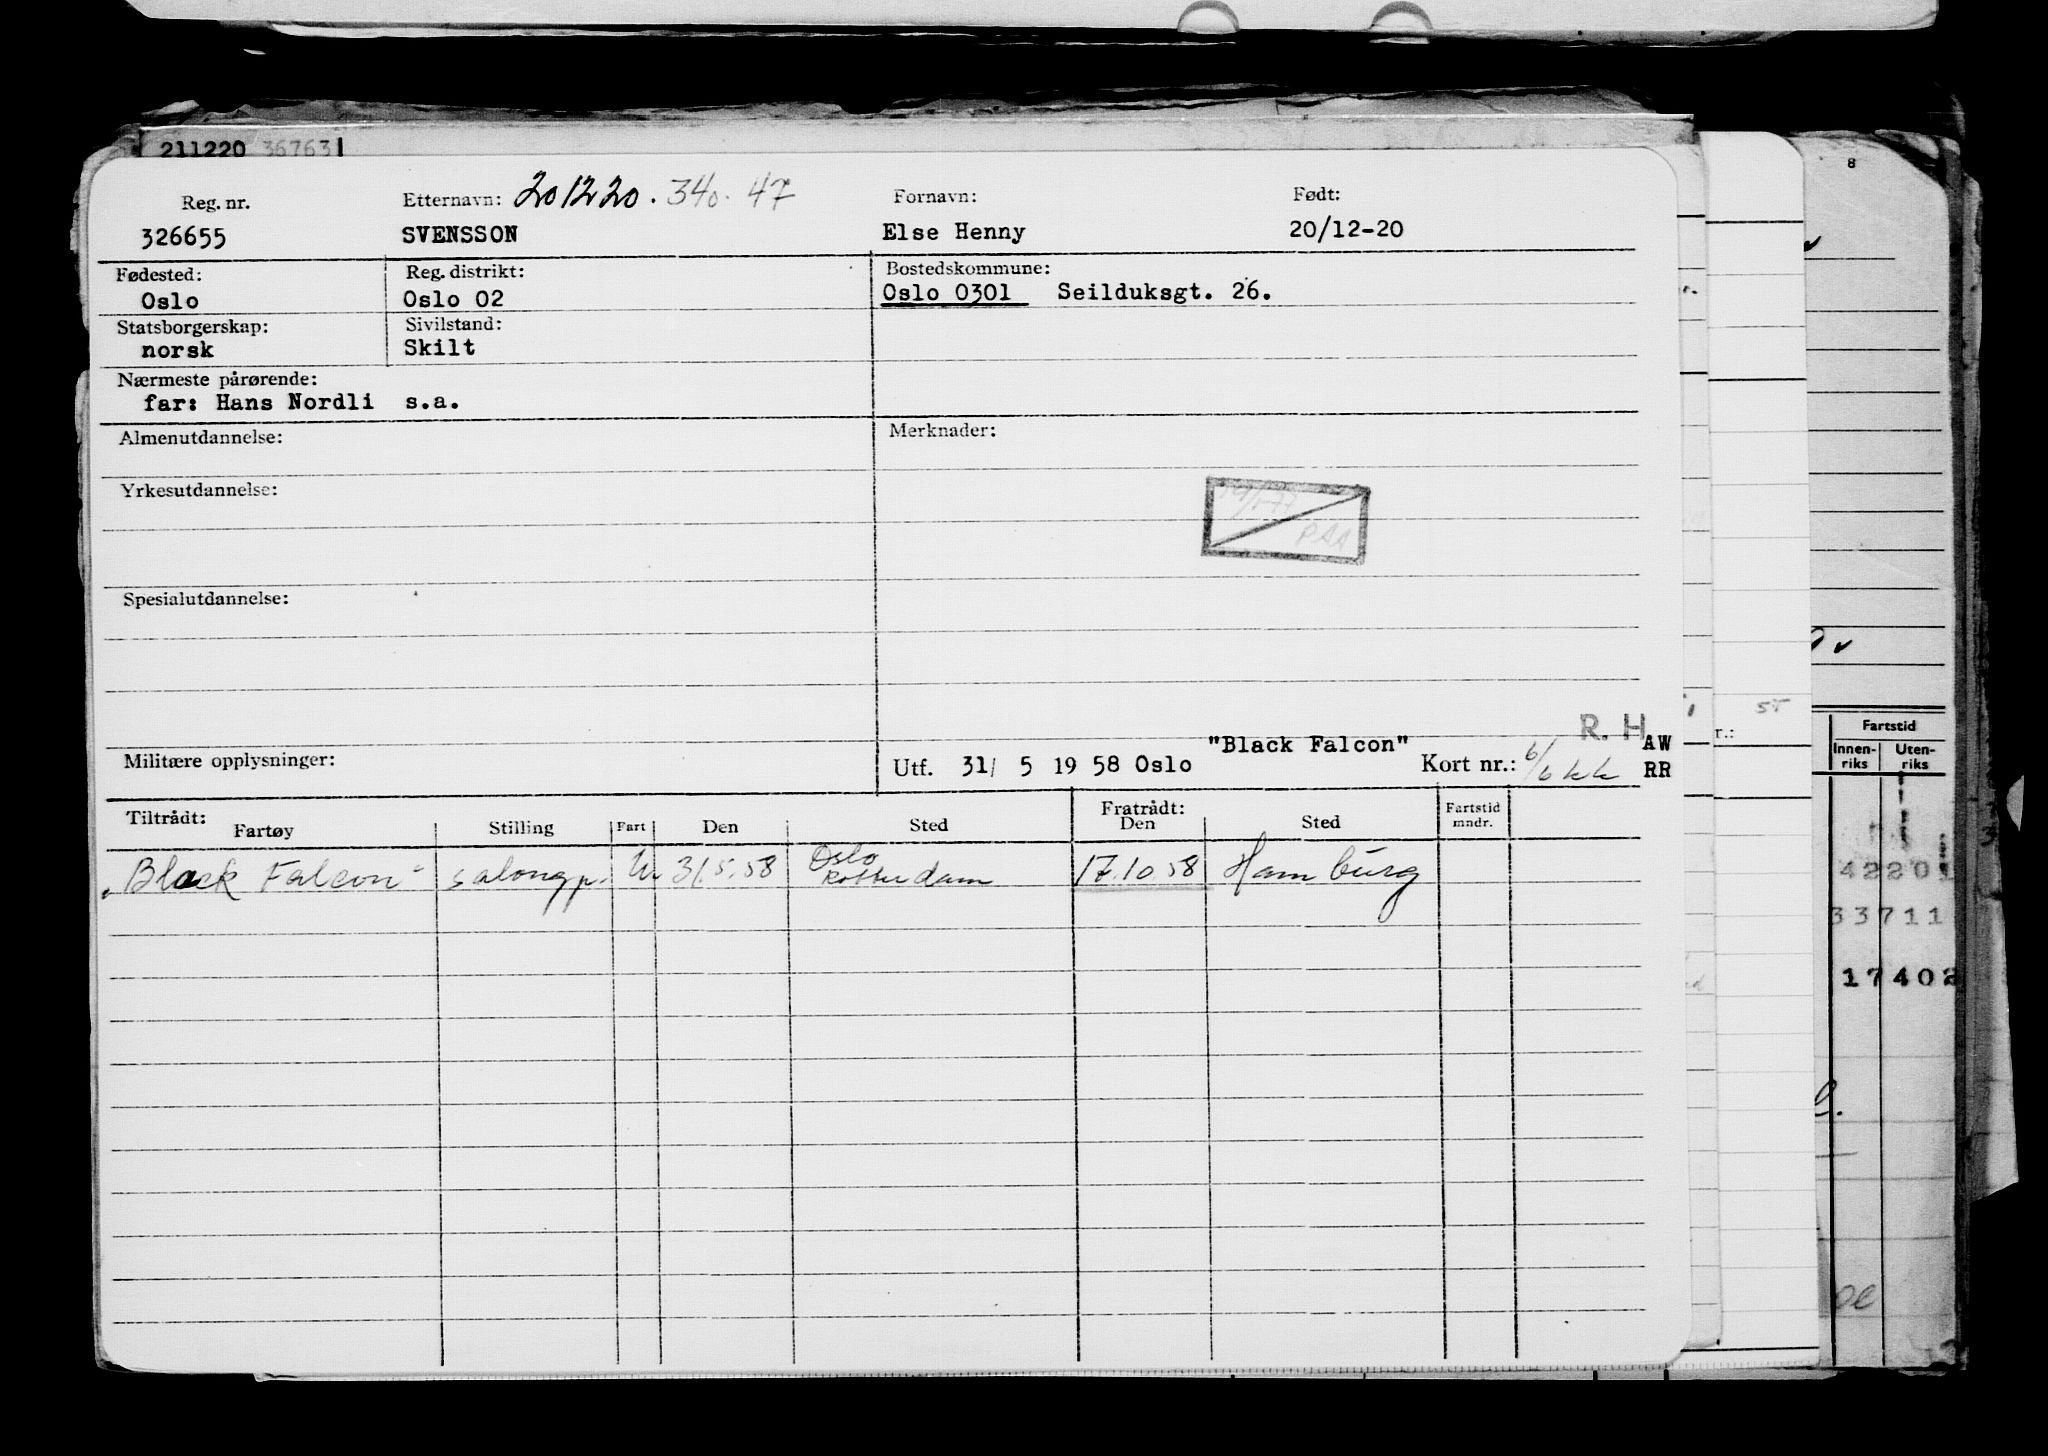 8
211220 367631
Reg. nr. Etternavn: 201220. 340. 47 Fornavn: Født:
326655 SVENSSON Else Henny 20/12-20
Fødested: Reg. distrikt: Bostedskommune:
Oslo Oslo 02 Oslo 0301 Seilduksgt. 26.
Statsborgerskap: Sivilstand:
norsk Skilt
Nærmeste pårørende:
far: Hans Nordli s.a.
Almenutdannelse: Merknader:
Yrkesutdannelse:
19/1-77
PAA
Spesialutdannelse:
R. H
"Black Falcon" AW
Militære opplysninger: Utf. 31/ 5 1958 Oslo Kort nr.: 6/6 kk RR
Tiltrådt: Fratrådt: Fartstid
Fartøy Stilling Fart Den Sted Den Sted mndr.
Oslo
"Black Falcon" salongp. U. 31.5.58 Rotterdam 17.10.58 Hamburg
r.: 5r
Fartstid
Innen- Uten-
riks riks
42201
33711
17402